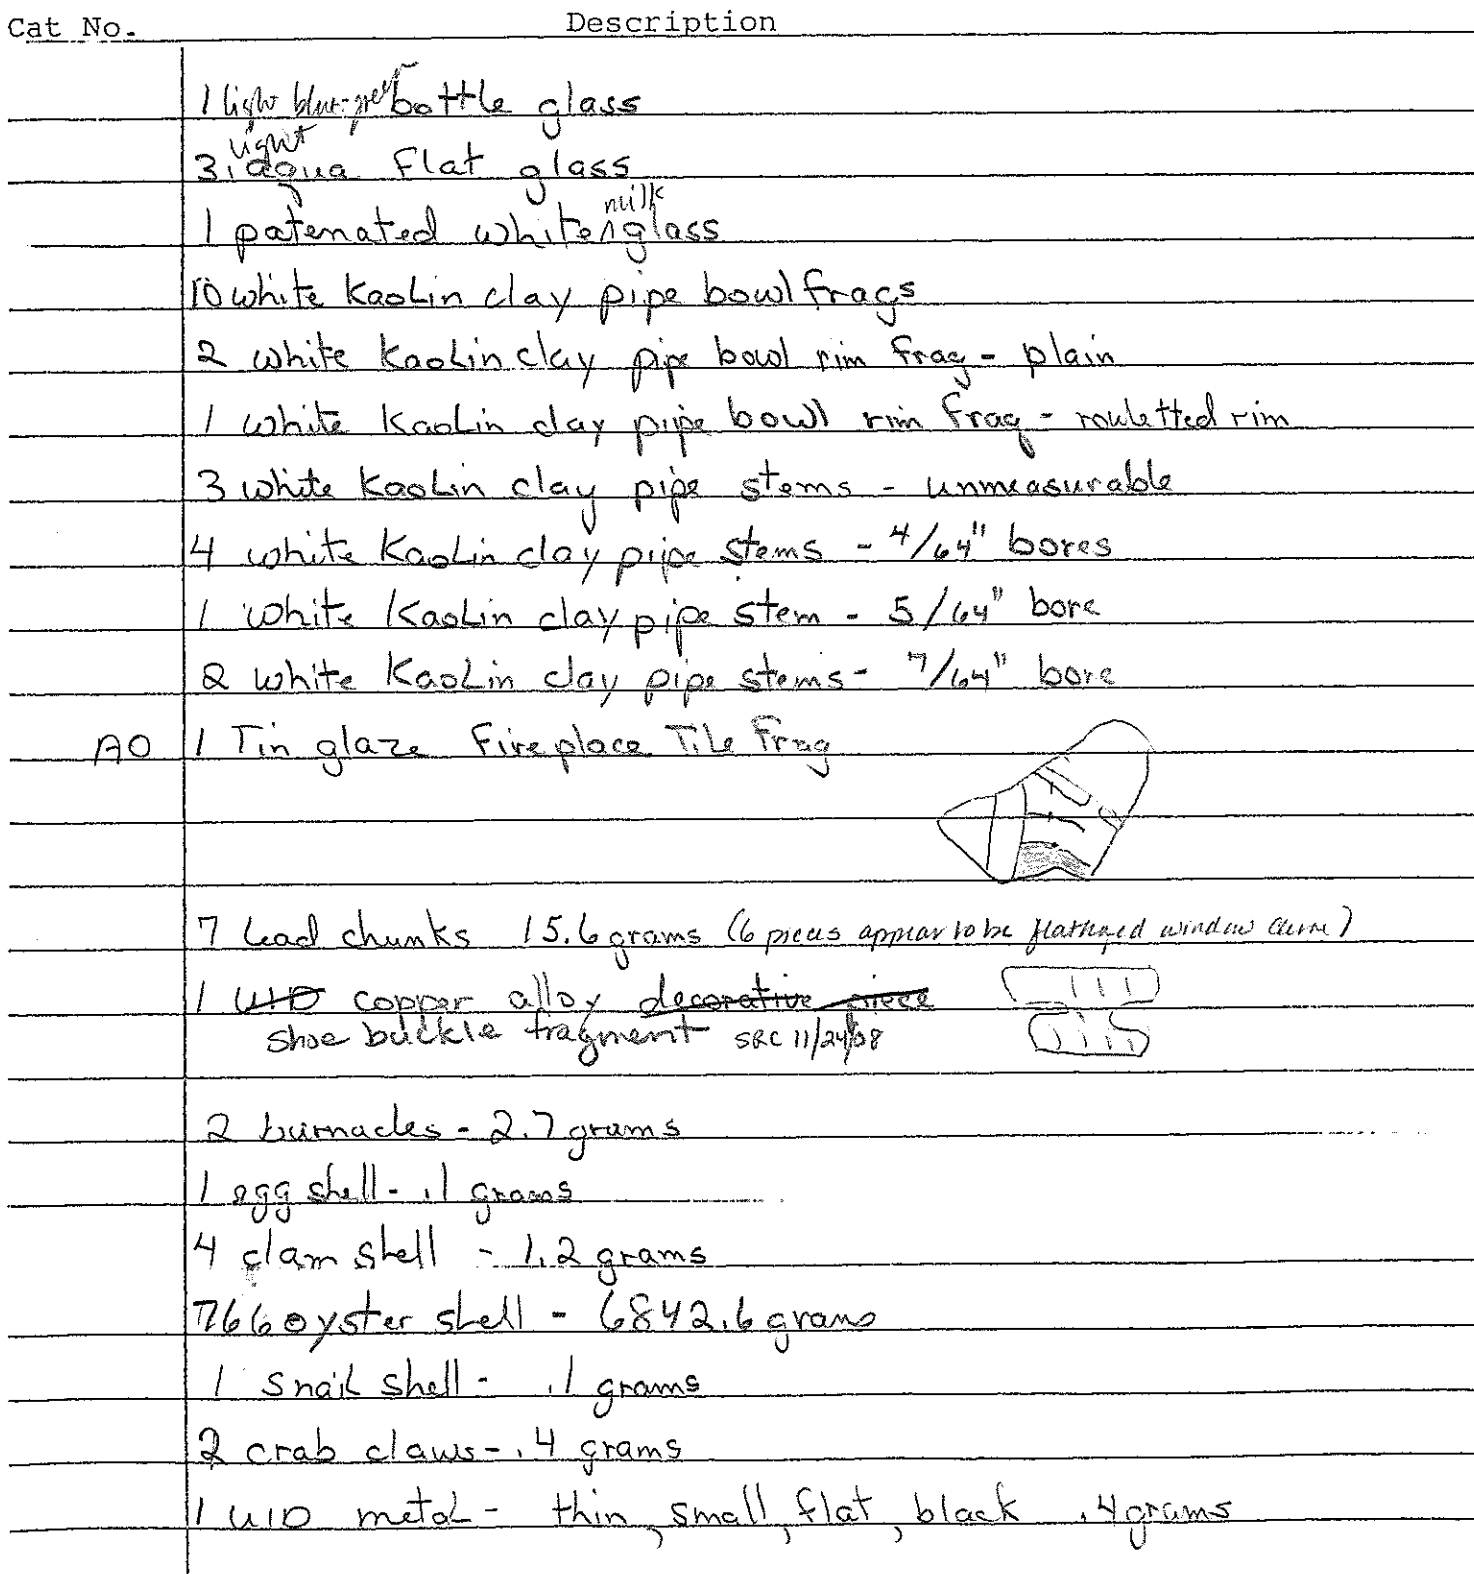 Cat No. Description
1 light blue-green bottle glass
3 light aqua flat glass
1 patenated white milk glass
10 white Kaolin clay pipe bowl frags
2 white Kaolin clay pipe bowl rim frag - plain
1 white Kaolin clay pipe bowl rim frag - rouletted rim
3 white Kaolin clay pipe stems - unmeasurable
4 white Kaolin clay pipe stems - 4/64" bores
1 white Kaolin clay pipe stem - 5/64" bore
2 white Kaolin clay pipe stems - 7/64" bore
AO 1 Tin glaze Fireplace Tile Frag
7 Lead chunks 15.6 grams (6 pieces appear to be flattened window came)
1 UID copper alloy decorative piece
shoe buckle fragment SRC 11/24/08
2 barnacles - 2.7 grams
1 egg shell - .1 grams
4 clam shell - 1.2 grams
766 oyster shell - 6842.6 grams
1 snail shell - .1 grams
2 crab claws - .4 grams
1 UID metal - thin, small, flat, black .4 grams